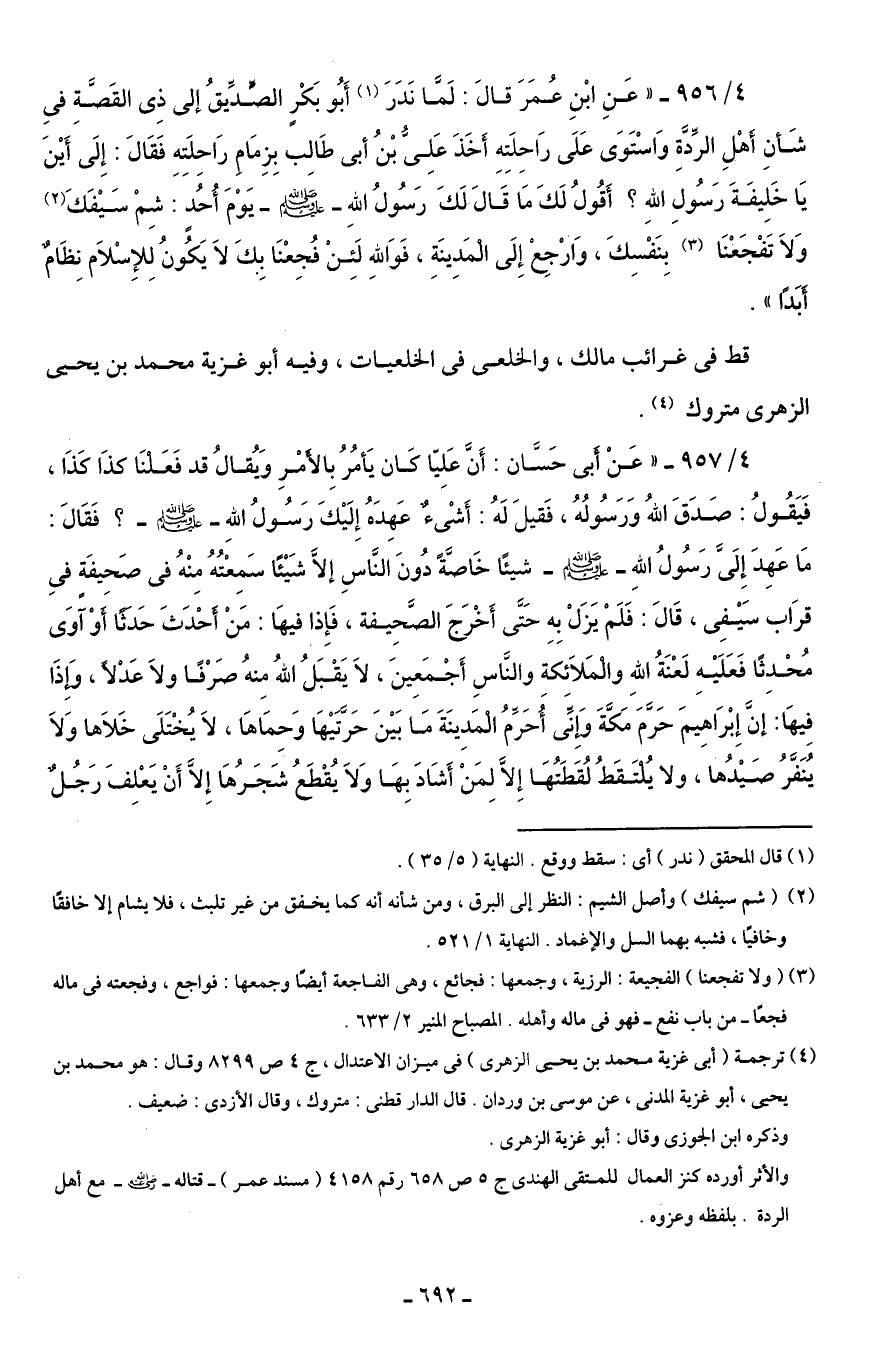 ٤/ ٩٥٦ ـ « عَنِ ابْنِ عُمَرَ قالَ : لَمَّا نَدَرَ (١) أَبُو بَكْرٍ الصِّدِّيقُ إلى ذِى القَصَّةِ فى
شَأنِ أَهْلِ الرِّدَّةِ وَاسْتَوَى عَلَى رَاحِلَتِهِ أَخَذَ عَلِىُّ بْنُ أبى طَالِبٍ بِزِمَامِ رَاحِلَتِهِ فَقَالَ : إلَى أَيْنَ
يَا خَلِيفَةَ رَسُولِ اللهِ ؟ أَقُولُ لَكَ مَا قَالَ لَكَ رَسُولُ اللهِ ـ ﷺ ـ يَوْمَ أُحُدٍ : شِمْ سَيْفَكَ (٢)
وَلاَ تَفْجَعْنَا (٣) بِنَفْسِكَ ، وَارْجِعْ إِلَى الْمَدِينَةِ ، فَوَاللهِ لَئِنْ فُجِعْنَا بِكَ لاَ يَكُونُ لِلإِسْلاَمِ نِظَامٌ
أَبَدًا » .
قط فى غرائب مالك ، والخلعى فى الخلعيات ، وفيه أبو غزية محمد بن يحيى
الزهرى متروك (٤) .
٤/ ٩٥٧ ـ « عَنْ أَبى حَسَّان : أَنَّ عَلِيّا كَان يَأمُرُ بِالأَمْرِ وَيُقالُ قد فَعَلْنَا كذَا كَذَا ،
فَيَقُولُ : صَدَقَ اللهُ وَرَسُولُهُ ، فَقِيلَ لَهُ : أَشْىءٌ عَهِدَهُ إِلَيْكَ رَسُولُ اللهِ ـ ﷺ ـ ؟ فَقَالَ :
مَا عَهِدَ إِلَىَّ رَسُولُ اللهِ ـ ﷺ ـ شيئًا خَاصَّةً دُونَ النَّاسِ إلاَّ شَيْئًا سَمِعْتُهُ مِنْهُ فى صَحِيفَةٍ فى
قِرَابِ سَيْفِى ، قَالَ : فَلَمْ يَزَلْ بِهِ حَتَّى أَخْرَجَ الصَّحِيفة ، فَإذا فيهَا : مَنْ أَحْدَثَ حَدَثًا أوْ آوَى
مُحْدثًا فَعَلَيْهِ لَعْنَةُ اللهِ والْمَلاَئِكَةِ والنَّاسِ أَجْمَعِينَ ، لاَ يَقْبَلُ اللهُ مِنهُ صَرْفًا ولاَ عَدْلاً ، وَإِذَا
فِيهَا: إنَّ إبْرَاهِيمَ حَرَّمَ مَكَّةَ وَإِنِّى أُحَرِّمُ الْمَدِينَةَ مَا بَيْنَ حَرَّتَيْهَا وَحِمَاهَا ، لاَ يُخْتَلَى خَلاَها وَلاَ
يُنَفَّرُ صَيْدُها ، ولا يُلْتَقَطُ لُقَطَتُهَا إلاَّ لِمَنْ أَشَادَ بِهَا وَلاَ يُقْطَعُ شَجَرُهَا إلاَّ أَنْ يَعْلِفَ رَجُلٌ
(١) قال المحقق ( ندر ) أى : سقط ووقع . النهاية ( ٥/ ٣٥ ) .
(٢) ( شم سيفك ) وأصل الشيم : النظر إلى البرق ، ومن شأنه أنه كما يخفق من غير تلبث ، فلا يشام إلا خافقًا
وخافيًا ، فشبه بهما السل والإغماد . النهاية ١/ ٥٢١ .
(٣) ( ولا تفجعنا ) الفجيعة : الرزية ، وجمعها : فجائع ، وهى الفاجعة أيضًا وجمعها : فواجع ، وفجعته فى ماله
فجعًا ـ من باب نفع ـ فهو فى ماله وأهله . المصباح المنير ٢/ ٦٣٣ .
(٤) ترجمة ( أبى غزية محمد بن يحيى الزهرى ) فى ميزان الاعتدال ، ج ٤ ص ٨٢٩٩ وقال : هو محمد بن
يحيى ، أبو غزية المدنى ، عن موسى بن وردان . قال الدار قطنى : متروك ، وقال الأزدى : ضعيف .
وذكره ابن الجوزى وقال : أبو غزية الزهرى .
والأثر أورده كنز العمال للمتقى الهندى ج ٥ ص ٦٥٨ رقم ٤١٥٨ ( مسند عمر ) ـ قتاله ـ رضي الله عنه ـ مع أهل
الردة . بلفظه وعزوه .
ـ ٦٩٢ ـ